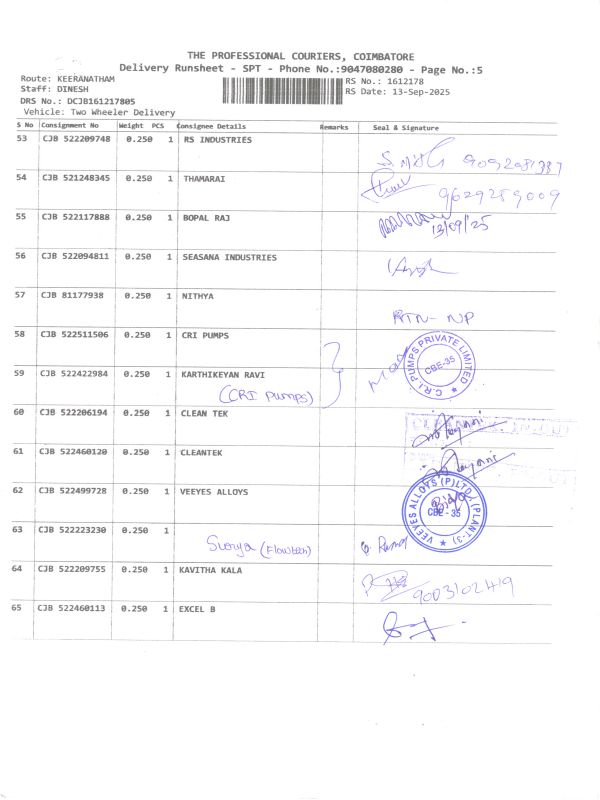 THE PROFESSIONAL COURIERS, COIMBATORE
Delivery Runsheet - SPT - Phone No.:9047080280 - Page No.:5
Route: KEERANATHAM RS No.: 1612178
Staff: DINESH RS Date: 13-Sep-2025
DRS No.: DCJB161217805
Vehicle: Two Wheeler Delivery
S No Consignment No Weight PCS Consignee Details Remarks Seal & Signature
53 CJB 522209748 0.250 1 RS INDUSTRIES
54 CJB 521248345 0.250 1 THAMARAI
9629289009
55 CJB 522117888 0.250 1 BOPAL RAJ
13/09/25
56 CJB 522094811 0.250 1 SEASANA INDUSTRIES
57 CJB 81177938 0.250 1 NITHYA
RTN- NP
58 CJB 522511506 0.250 1 CRI PUMPS
C.R.I PUMPS PRIVATE LIMITED
CBE-35
59 CJB 522422984 0.250 1 KARTHIKEYAN RAVI
(CRI Pumps)
60 CJB 522206194 0.250 1 CLEAN TEK
61 CJB 522460120 0.250 1 CLEANTEK
62 CJB 522499728 0.250 1 VEEYES ALLOYS
VEEYES ALLOYS (P)LTD, (PLANT-3)
CBE-35
63 CJB 522223230 0.250 1
Surya (Flowtech)
64 CJB 522209755 0.250 1 KAVITHA KALA
9003102419
65 CJB 522460113 0.250 1 EXCEL B